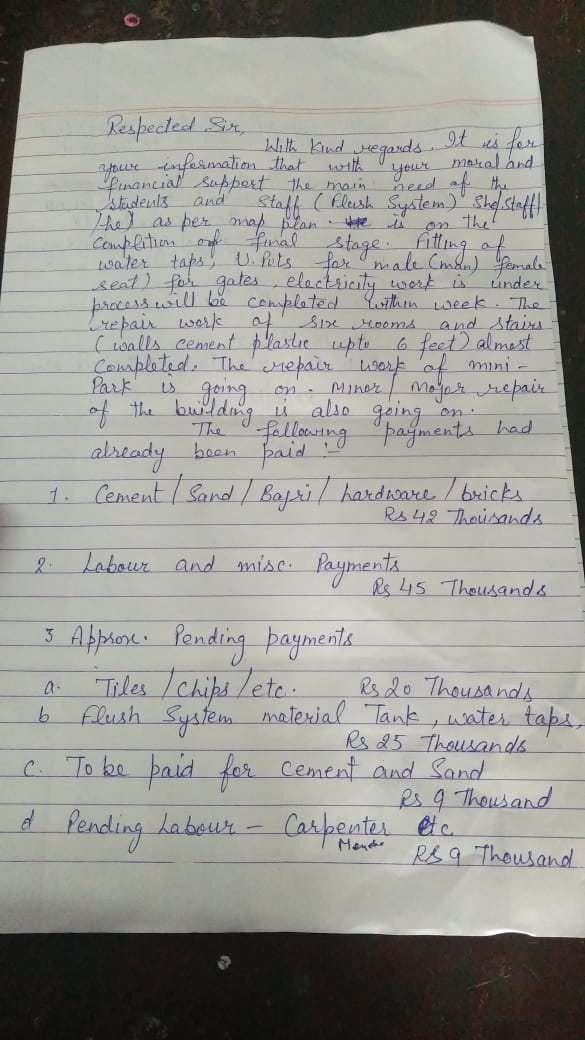 Respected Sir,
With Kind regards. It is for
your information that with your moral and
financial support the main need of the
students and Staff (Flush System) She/Staff/
/he) as per map plan. is on the
Complition of final stage. Fitling of
water taps, U. Pots for male (man) female
seat) for gates, electricity work is under
process will be completed within week. The
repair work of six rooms and stairs
(walls cement plastic upto 6 feet) almost
Completed. The repair work of mini-
Park is going on. Miner/ Major repair
of the building is also going on.
The following payments had
already been paid :-
1. Cement / Sand / Bajri / hardware / bricks
Rs 42 Thousands
2. Labour and misc. Payments
Rs 45 Thousands
3 Approx. Pending payments
a. Tiles / Chips / etc. Rs 20 Thousands
b Flush System material Tank, water taps,
Rs 25 Thousands
C. To be paid for cement and Sand
Rs 9 Thousand
d Pending Labour - Carpenter etc.
Rs 9 Thousand